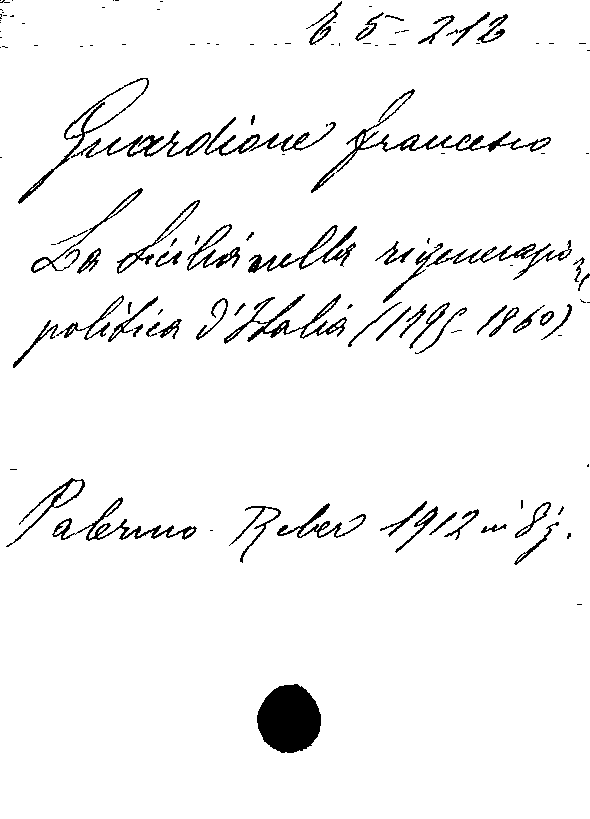 E 5-212
Guardione Francesco
La Sicilia nella rigenerazione
politica d'Italia (1795-1860)
Palermo Reber 1912 in 8